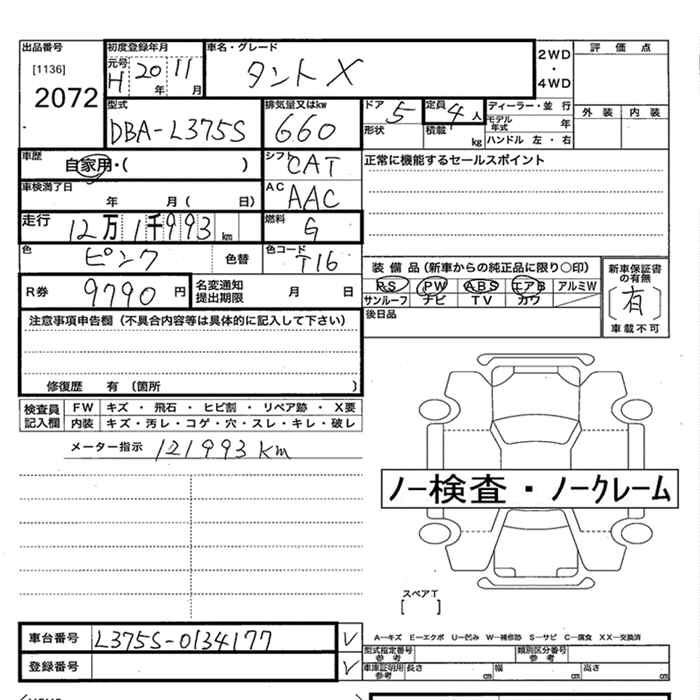 出品番号 初度登録年月 車名・グレード 2WD ・ 4WD 評価点
[1136] 元号 H 20 年 11 月 タントX
2072 外装 内装
型式 排気量又はkw ドア 5 定員 4人 ディーラー・並行
DBA-L375S 660 形状 積載 kg モデル年式 年
ハンドル 左・右
車歴 自家用・( ) シフト CAT 正常に機能するセールスポイント
車検満了日 年 月( 日) AC AAC
走行 12万1千993km 燃料 G
色 ピンク 色替 色コード T16
装備品(新車からの純正品に限り○印) 新車保証書の有無
R券 9790円 名変通知提出期限 月 日 PS PW ABS エアB アルミW [有]
サンルーフ ナビ TV カワ
注意事項申告欄(不具合内容等は具体的に記入して下さい) 後日品 車載不可
修復歴 有(箇所 )
検査員記入欄 FW キズ・飛石・ヒビ割・リペア跡・X要
内装 キズ・汚レ・コゲ・穴・スレ・キレ・破レ
メーター指示 121993km
ノー検査・ノークレーム
スペアT
[ ]
車台番号 L375S-0134177 ✓ A−キズ E−エクボ U−凹み W−補修跡 S−サビ C−腐食 XX−交換済
型式指定番号 参考 類別区分番号 参考
登録番号 ✓ 車庫証明用参考 長さ cm 幅 cm 高さ cm